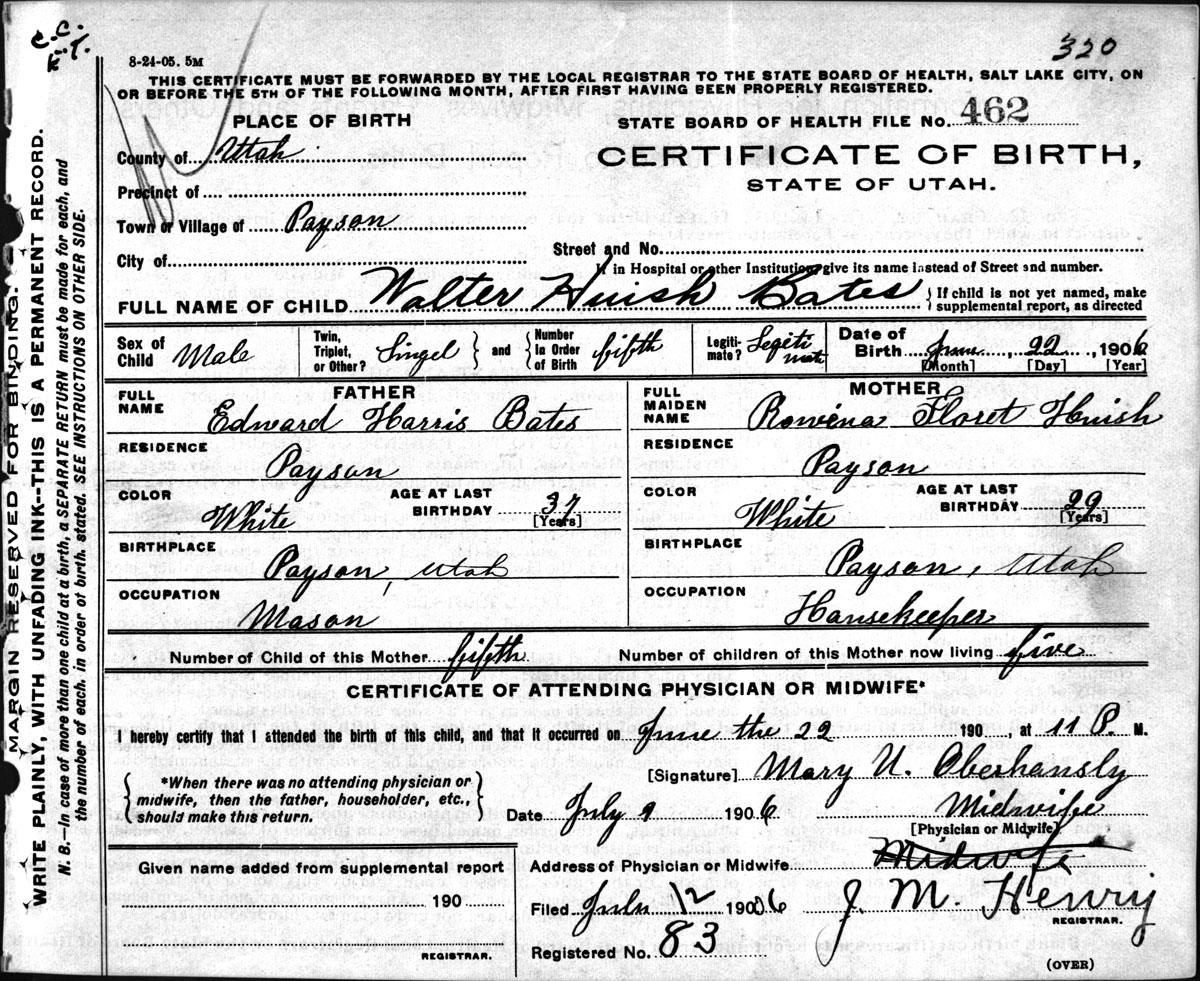 C. C.
K. T.
320
8-24-05. 5M
THIS CERTIFICATE MUST BE FORWARDED BY THE LOCAL REGISTRAR TO THE STATE BOARD OF HEALTH, SALT LAKE CITY, ON
OR BEFORE THE 5TH OF THE FOLLOWING MONTH, AFTER FIRST HAVING BEEN PROPERLY REGISTERED.
PLACE OF BIRTH
STATE BOARD OF HEALTH FILE NO. 462
County of Utah
CERTIFICATE OF BIRTH,
STATE OF UTAH.
Precinct of
Town or Village of Payson
Street and No.
City of
If in Hospital or other Institution, give its name instead of Street and number.
FULL NAME OF CHILD Walter Huish Bates { If child is not yet named, make
supplemental report, as directed
Sex of Child Male
Twin, Triplet, or Other? Singel } and { Number In Order of Birth fifth
Legiti-mate? Legiti mate
Date of Birth June, 22, 1906
[Month] [Day] [Year]
FATHER
FULL NAME Edward Harris Bates
RESIDENCE
Payson
COLOR White AGE AT LAST BIRTHDAY 37 [Years]
BIRTHPLACE
Payson, Utah
OCCUPATION
Mason
MOTHER
FULL MAIDEN NAME Rowena Floret Huish
RESIDENCE
Payson
COLOR White AGE AT LAST BIRTHDAY 29 [Years]
BIRTHPLACE
Payson, Utah
OCCUPATION
Hansekeeper
Number of Child of this Mother fifth Number of children of this Mother now living five
CERTIFICATE OF ATTENDING PHYSICIAN OR MIDWIFE*
I hereby certify that I attended the birth of this child, and that it occurred on June the 22 190 , at 11 P. M.
{ *When there was no attending physician or
midwife, then the father, householder, etc.,
should make this return. }
[Signature] Mary U. Oberhansly
Date July 9 1906 Midwife
[Physician or Midwife]
Given name added from supplemental report
190
REGISTRAR.
Address of Physician or Midwife Midwife
Filed July 12 1906 J. M. Henry
REGISTRAR.
Registered No. 83
(OVER)
MARGIN RESERVED FOR BINDING.
WRITE PLAINLY, WITH UNFADING INK--THIS IS A PERMANENT RECORD.
N. B.—In case of more than one child at a birth, a SEPARATE RETURN must be made for each, and
the number of each, in order of birth, stated. SEE INSTRUCTIONS ON OTHER SIDE.